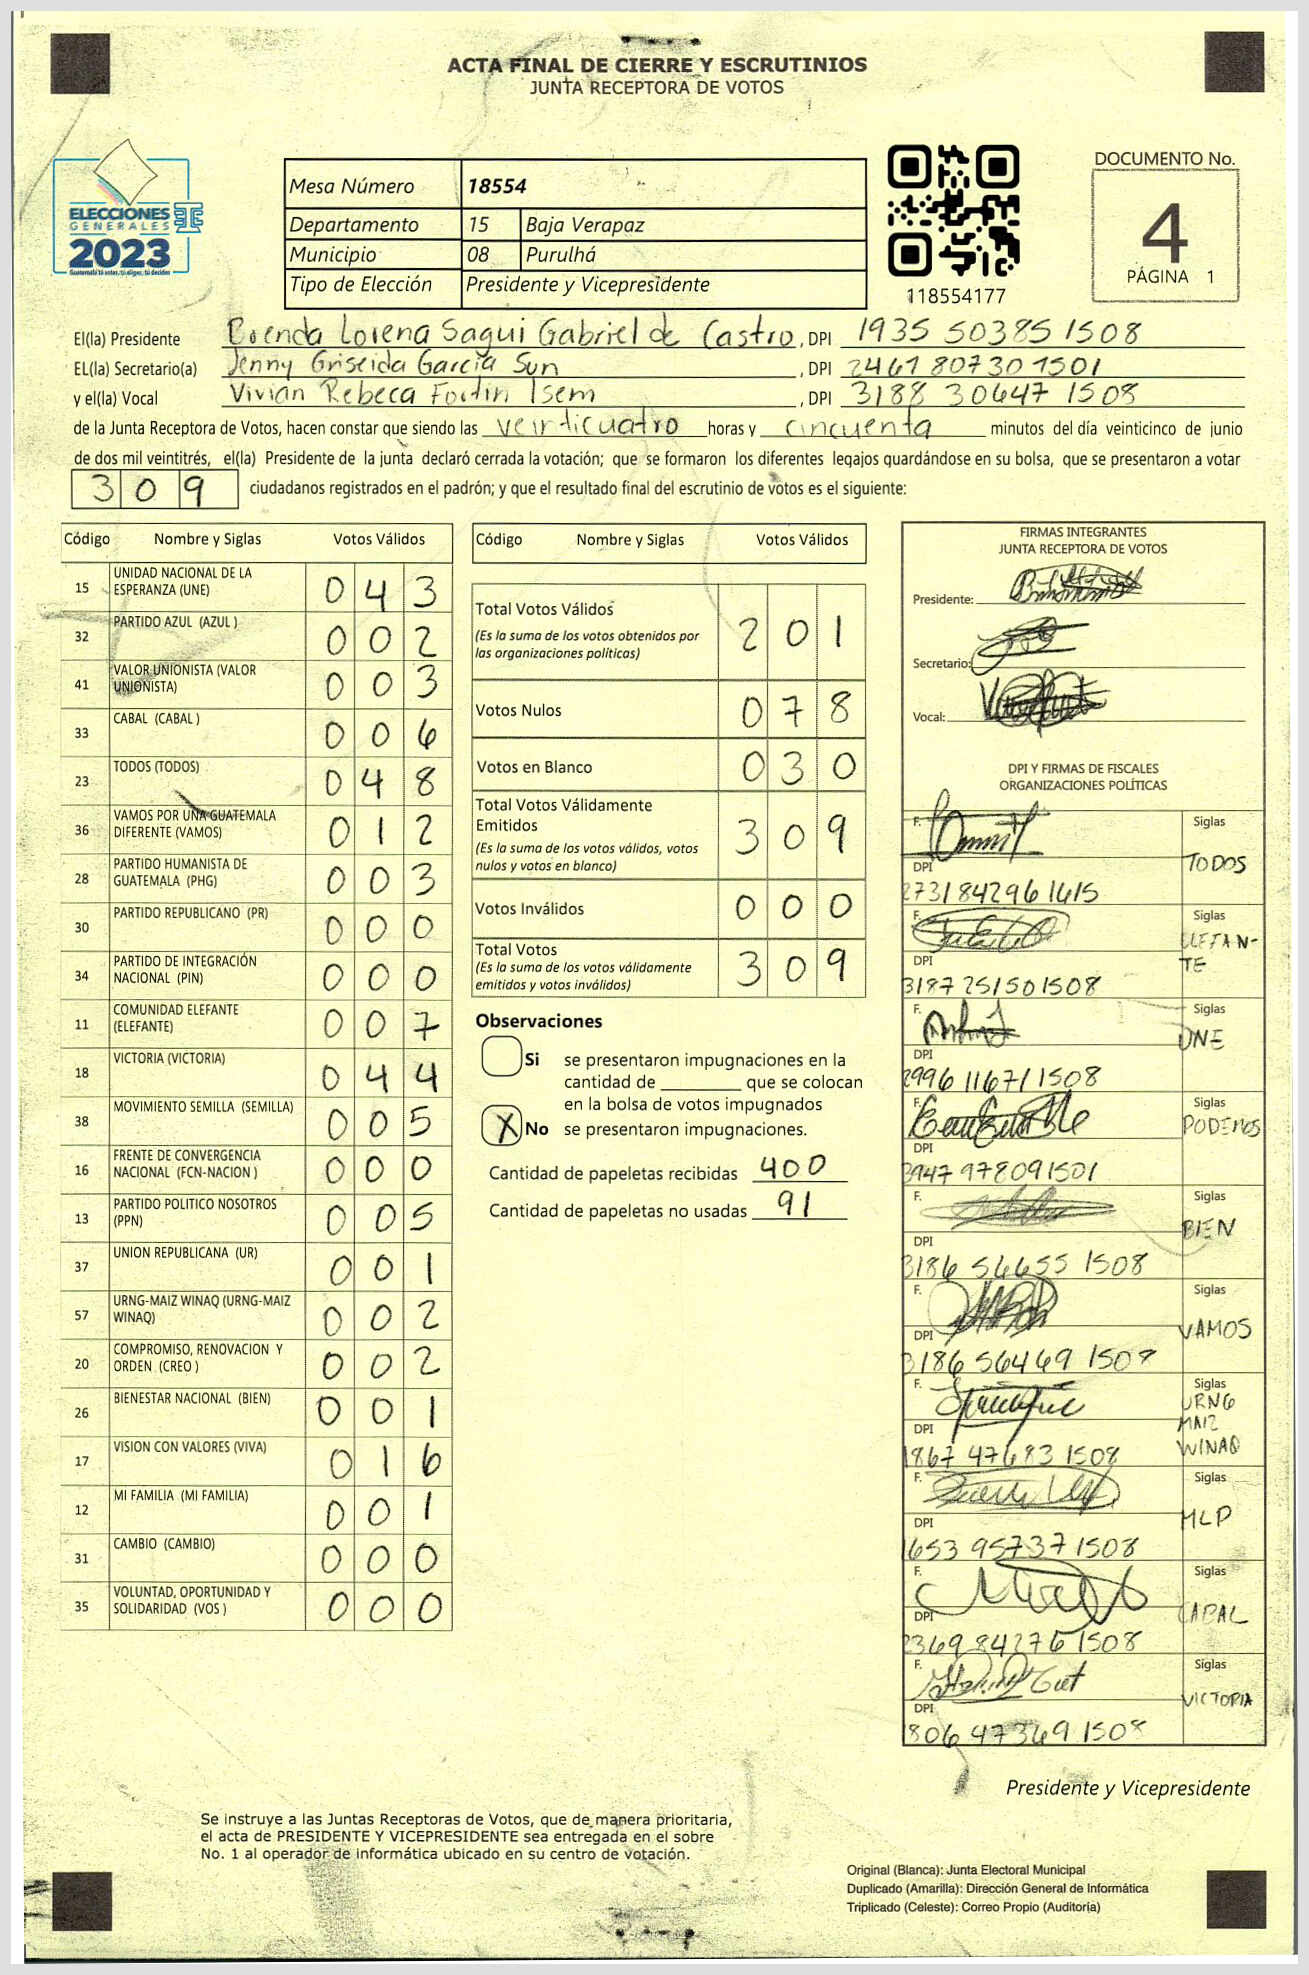 ACTA FINAL DE CIERRE Y ESCRUTINIOS
JUNTA RECEPTORA DE VOTOS
ELECCIONES
GENERALES
2023
Guatemala tú votas, tú eliges, tú decides
Mesa Número 18554
Departamento 15 Baja Verapaz
Municipio 08 Purulhá
Tipo de Elección Presidente y Vicepresidente
118554177
DOCUMENTO No.
4
PÁGINA 1
El(la) Presidente Brenda Lorena Sagui Gabriel de Castro, DPI 1935 50385 1508
EL(la) Secretario(a) Jenny Griseida García Sun, DPI 2461 80730 1501
y el(la) Vocal Vivian Rebeca Fortin Isem, DPI 3188 30647 1508
de la Junta Receptora de Votos, hacen constar que siendo las veinticuatro horas y cincuenta minutos del día veinticinco de junio
de dos mil veintitrés, el(la) Presidente de la junta declaró cerrada la votación; que se formaron los diferentes legajos guardándose en su bolsa, que se presentaron a votar
309 ciudadanos registrados en el padrón; y que el resultado final del escrutinio de votos es el siguiente:
Código Nombre y Siglas Votos Válidos
15 UNIDAD NACIONAL DE LA ESPERANZA (UNE) 043
32 PARTIDO AZUL (AZUL ) 002
41 VALOR UNIONISTA (VALOR UNIONISTA) 003
33 CABAL (CABAL ) 006
23 TODOS (TODOS) 048
36 VAMOS POR UNA GUATEMALA DIFERENTE (VAMOS) 012
28 PARTIDO HUMANISTA DE GUATEMALA (PHG) 003
30 PARTIDO REPUBLICANO (PR) 000
34 PARTIDO DE INTEGRACIÓN NACIONAL (PIN) 000
11 COMUNIDAD ELEFANTE (ELEFANTE) 007
18 VICTORIA (VICTORIA) 044
38 MOVIMIENTO SEMILLA (SEMILLA) 005
16 FRENTE DE CONVERGENCIA NACIONAL (FCN-NACION ) 000
13 PARTIDO POLITICO NOSOTROS (PPN) 005
37 UNION REPUBLICANA (UR) 001
57 URNG-MAIZ WINAQ (URNG-MAIZ WINAQ) 002
20 COMPROMISO, RENOVACION Y ORDEN (CREO ) 002
26 BIENESTAR NACIONAL (BIEN) 001
17 VISION CON VALORES (VIVA) 016
12 MI FAMILIA (MI FAMILIA) 001
31 CAMBIO (CAMBIO) 000
35 VOLUNTAD, OPORTUNIDAD Y SOLIDARIDAD (VOS ) 000
Código Nombre y Siglas Votos Válidos
Total Votos Válidos 201
(Es la suma de los votos obtenidos por
las organizaciones políticas)
Votos Nulos 078
Votos en Blanco 030
Total Votos Válidamente
Emitidos 309
(Es la suma de los votos válidos, votos
nulos y votos en blanco)
Votos Inválidos 000
Total Votos 309
(Es la suma de los votos válidamente
emitidos y votos inválidos)
Observaciones
Si se presentaron impugnaciones en la
cantidad de ________ que se colocan
en la bolsa de votos impugnados
X No se presentaron impugnaciones.
Cantidad de papeletas recibidas 400
Cantidad de papeletas no usadas 91
FIRMAS INTEGRANTES
JUNTA RECEPTORA DE VOTOS
Presidente:
Secretario:
Vocal:
DPI Y FIRMAS DE FISCALES
ORGANIZACIONES POLÍTICAS
F. Siglas
TODOS
DPI
2731 84296 1615
F. Siglas
ELEFAN-
TE
DPI
3187 25150 1508
F. Siglas
UNE
DPI
2996 11671 1508
F. Siglas
PODEMOS
DPI
2947 97809 1501
F. Siglas
BIEN
DPI
3186 56655 1508
F. Siglas
VAMOS
DPI
3186 56469 1508
F. Siglas
URNG
MAIZ
WINAQ
DPI
1867 47683 1508
F. Siglas
MLP
DPI
1653 95737 1508
F. Siglas
CABAL
DPI
2369 84276 1508
F. Siglas
VICTORIA
DPI
1806 47369 1508
Presidente y Vicepresidente
Se instruye a las Juntas Receptoras de Votos, que de manera prioritaria,
el acta de PRESIDENTE Y VICEPRESIDENTE sea entregada en el sobre
No. 1 al operador de informática ubicado en su centro de votación.
Original (Blanca): Junta Electoral Municipal
Duplicado (Amarilla): Dirección General de Informática
Triplicado (Celeste): Correo Propio (Auditoría)